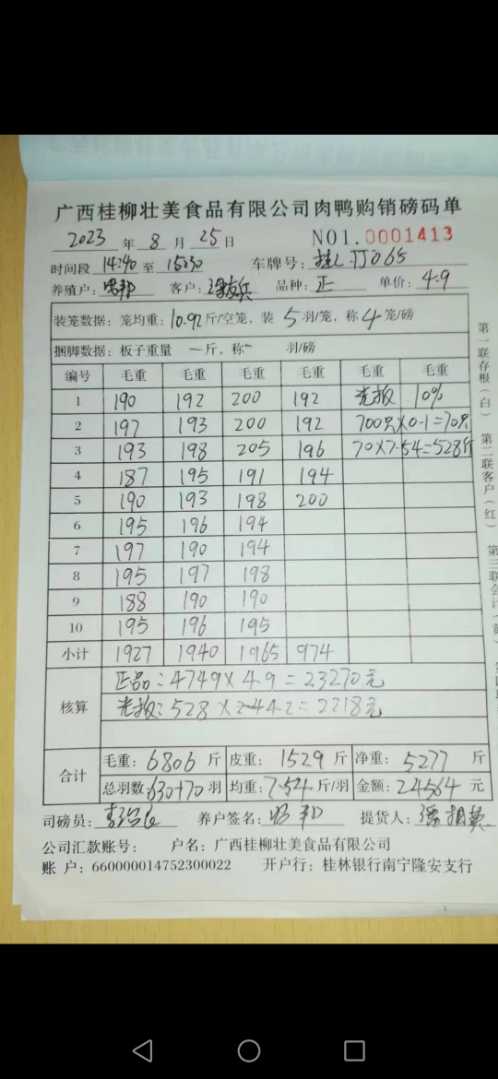 广西桂柳壮美食品有限公司肉鸭购销磅码单
2023 年 8 月 25 日 NO1.0001413
时间段 14:40 至 15:30 车牌号: JJ065
养殖户: 邦 客户: 品种: 正 单价: 4.9
装笼数据: 笼均重: 10.92 斤/空笼, 装 5 羽/笼, 称 4 笼/磅
捆脚数据: 板子重量 一 斤, 称 一 羽/磅
编号 毛重 毛重 毛重 毛重 毛重 毛重
1 190 192 200 192 10%
2 197 193 200 192 700只×0.1=70只
3 193 198 205 196 70×7.54=528斤
4 187 195 191 194
5 190 193 198 200
6 195 196 194
7 197 190 194
8 195 197 198
9 188 190 190
10 195 196 195
小计 1927 1940 1965 974
核算 正品: 4749×4.9=23270元
528×4.2=2218元
合计 毛重: 6806 斤 皮重: 1529 斤 净重: 5277 斤
总羽数: 630+70 羽 均重: 7.54 斤/羽 金额: 24564 元
司磅员: 养户签名: 邦 提货人:
公司汇款账号: 户名: 广西桂柳壮美食品有限公司
账 户: 660000014752300022 开户行: 桂林银行南宁隆安支行
第一联存根(白) 第二联客户(红) 第三联会计